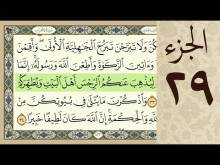 الجزء
٢٩
كن ولا تبرجن تبرج الجهلية الأولى وأقمن
وءاتين الزكوة وأطعن الله ورسوله إنما
ليذهب عنكم الرجس أهل البيت ويطهركم
واذكرن ما يتلى في بيوتكن من
والحكمة إن الله كان لطيفا خبيرا